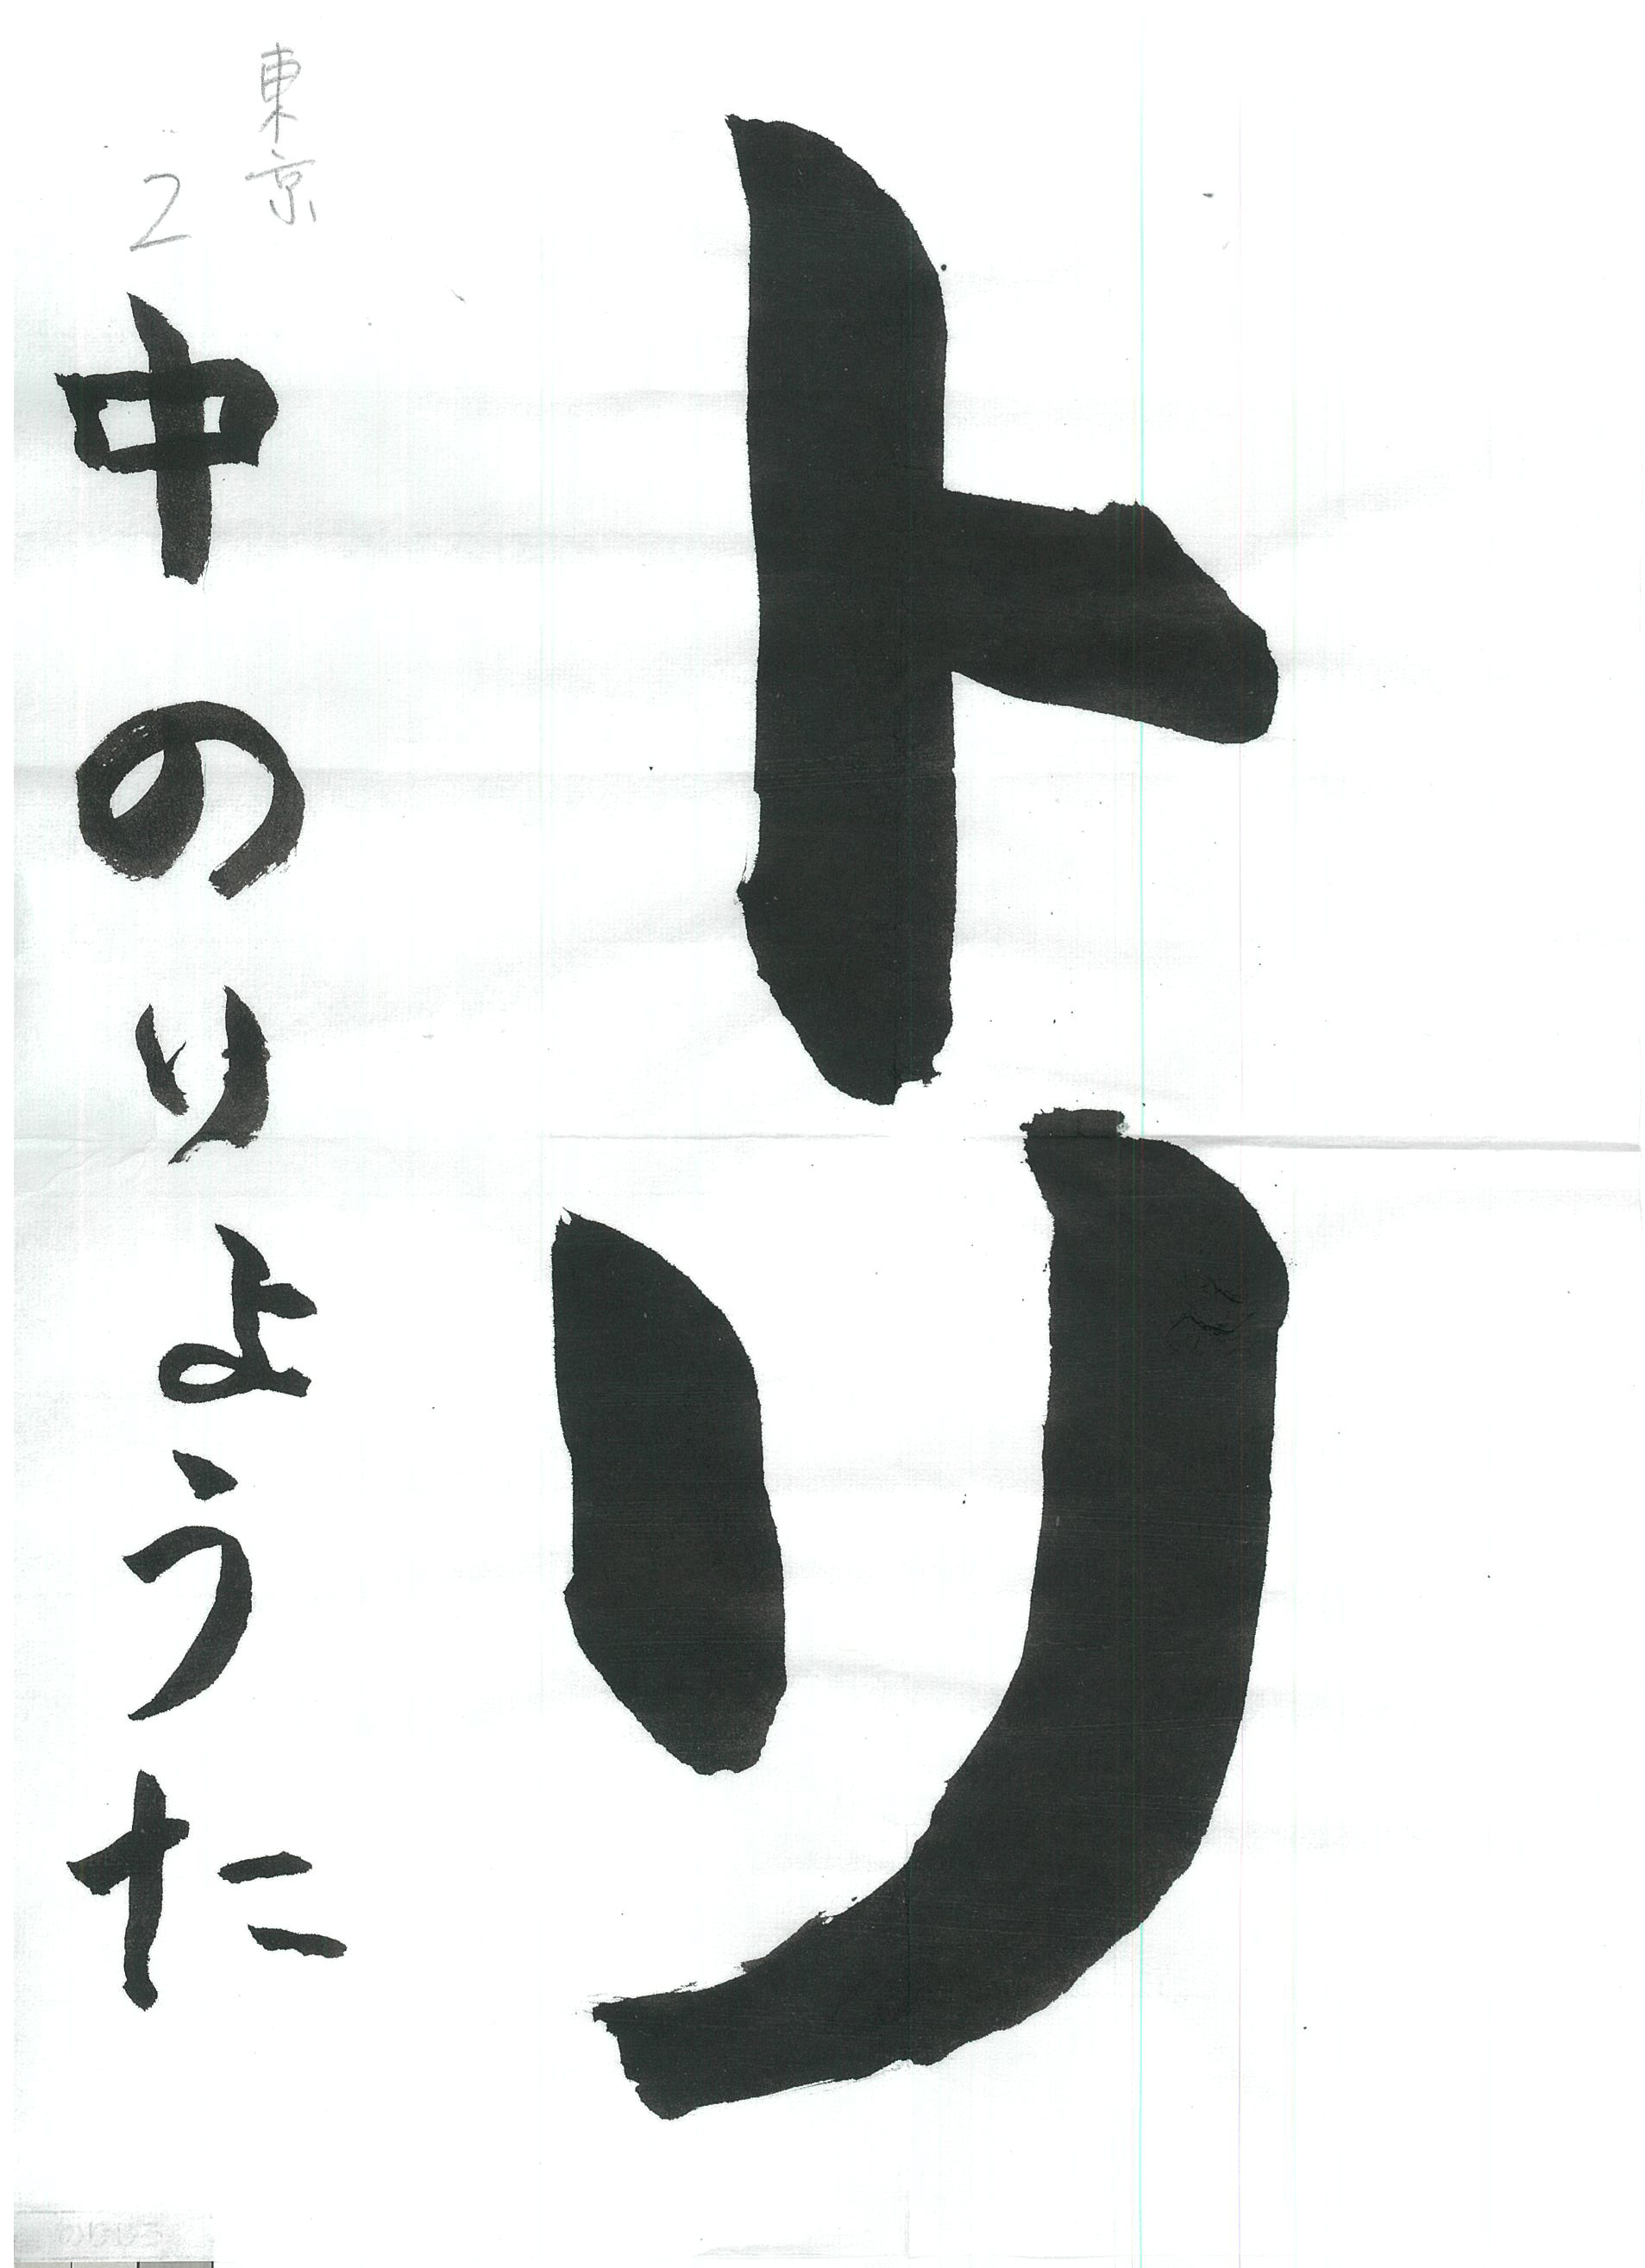 トリ
東京
2
中のりようた